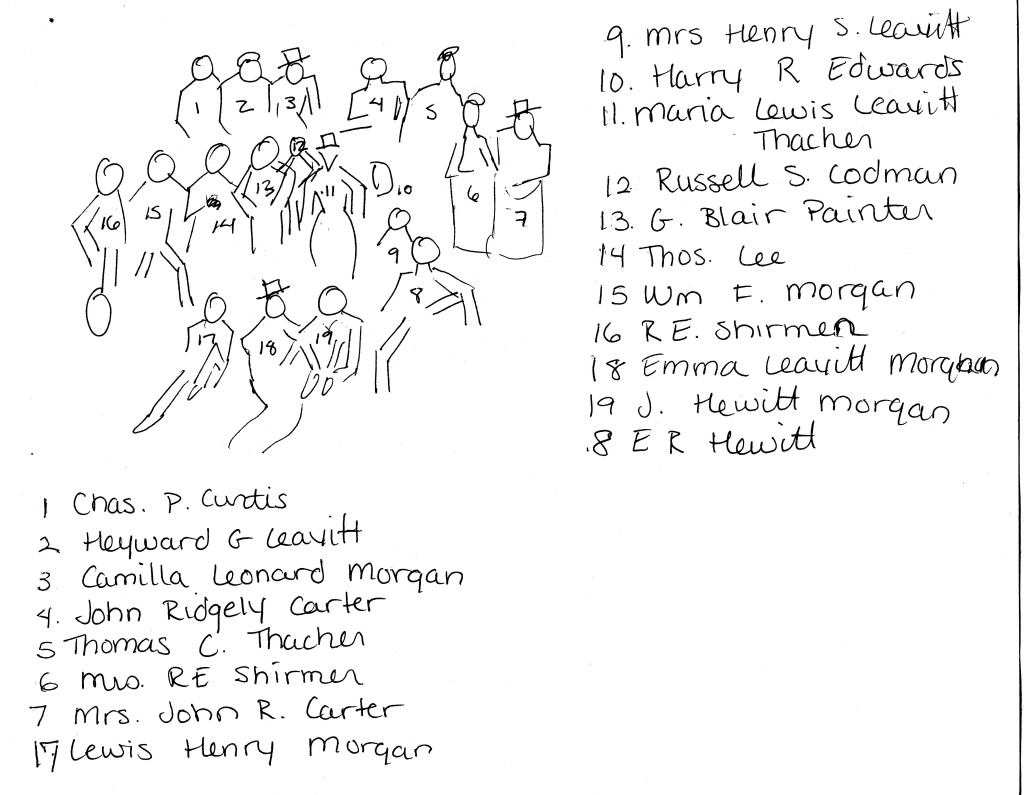 1 2 3 4 5
12
16 15 14 13 11 10 6 7
9
8
17 18 19
9. Mrs Henry S. Leavitt
10. Harry R Edwards
11. Maria Lewis Leavitt
Thacher
12 Russell S. Codman
13. G. Blair Painter
14 Thos. Lee
15 Wm F. Morgan
16 R E. Shirmer
18 Emma Leavitt Morgan
19 J. Hewitt Morgan
8 E R Hewitt
1 Chas. P. Curtis
2 Heyward G Leavitt
3 Camilla Leonard Morgan
4. John Ridgely Carter
5 Thomas C. Thacher
6 Mrs. RE Shirmer
7 Mrs. John R. Carter
17 Lewis Henry Morgan